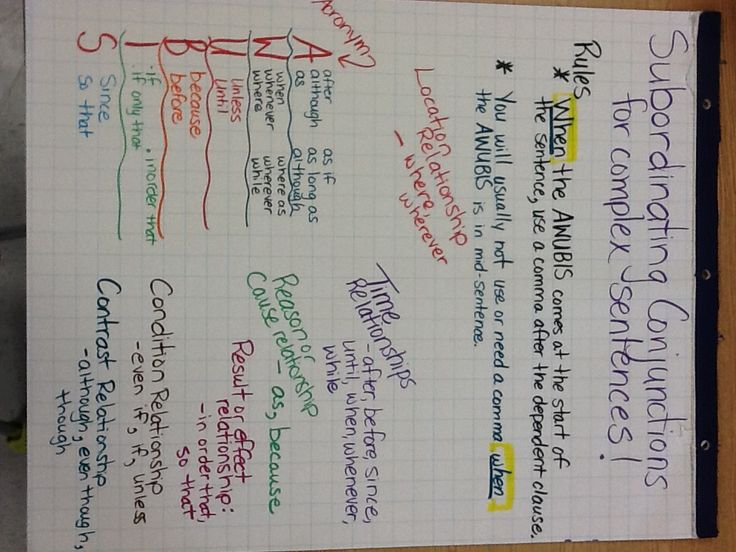 Subordinating Conjunctions
for complex sentences!
Rules
* When the AWUBIS comes at the start of
the sentence, use a comma after the dependent clause.
* You will usually not use or need a comma when
the AWUBIS is in mid-sentence.
Acronym
A
after as if
although as long as
as although
W
when where as
whenever wherever
where while
U
unless
until
B
because
before
I
· if · in order that
· if only that
S
since
so that
Location
Relationship
- where,
wherever
Time
Relationships
- after, before, since,
until, when, whenever,
while
Reason or
Cause relationship
- as, because
Result or effect
relationship:
- in order that,
so that
Condition Relationship
- even if, if, unless
Contrast Relationship
- although, even though,
though